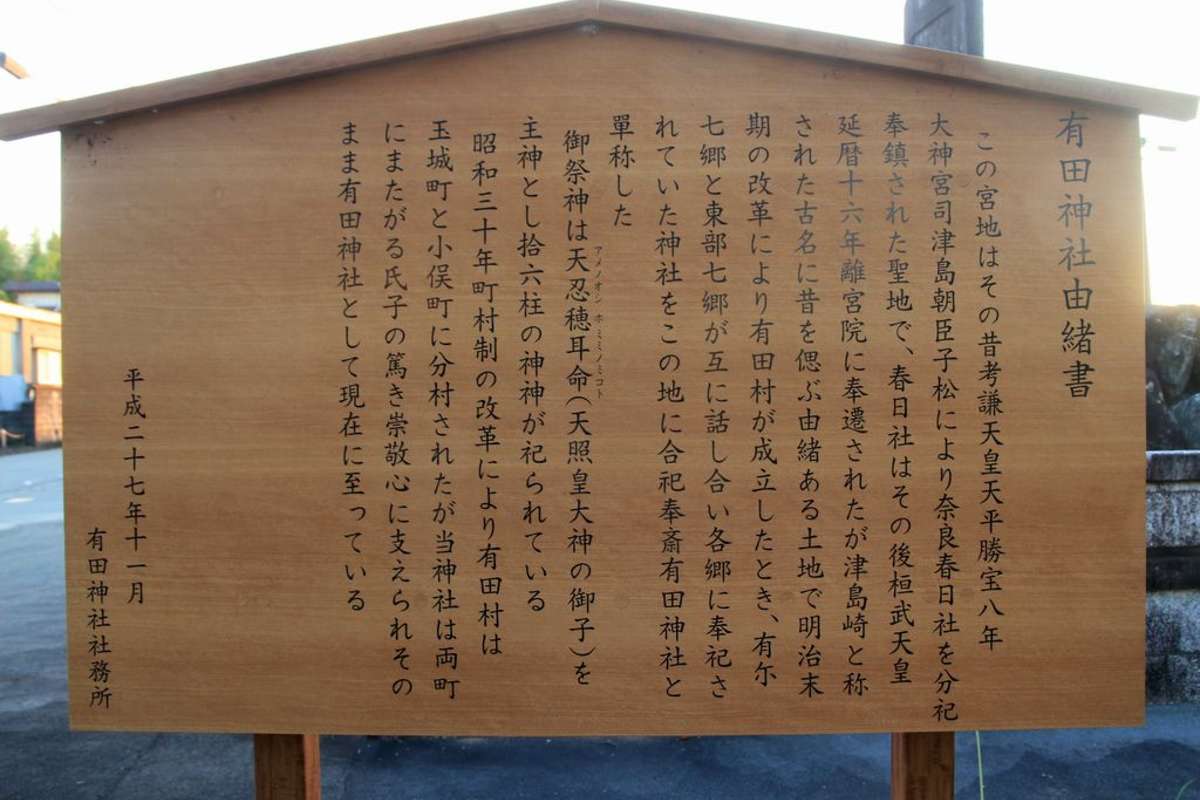 有田神社由緒書
この宮地はその昔考謙天皇天平勝宝八年
大神宮司津島朝臣子松により奈良春日社を分祀
奉鎮された聖地で、春日社はその後桓武天皇
延暦十六年離宮院に奉遷されたが津島崎と称
された古名に昔を偲ぶ由緒ある土地で明治末
期の改革により有田村が成立したとき、有尓
七郷と東部七郷が互に話し合い各郷に奉祀さ
れていた神社をこの地に合祀奉斎有田神社と
單称した
御祭神は天忍穂耳命(天照皇大神の御子)を
アメノオシホミミノミコト
主神とし拾六柱の神神が祀られている
昭和三十年町村制の改革により有田村は
玉城町と小俣町に分村されたが当神社は両町
にまたがる氏子の篤き崇敬心に支えられその
まま有田神社として現在に至っている
平成二十七年十一月
有田神社社務所